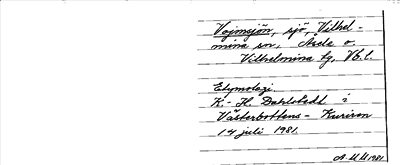 Vojmsjön, sjö, Vilhel-
mina sn, Åsele o.
Vilhelmina tg, Vb. l.
Etymologi.
K.-H. Dahlstedt i
Västerbottens-Kuriren
14 juli 1981.
A.M.U. 1981